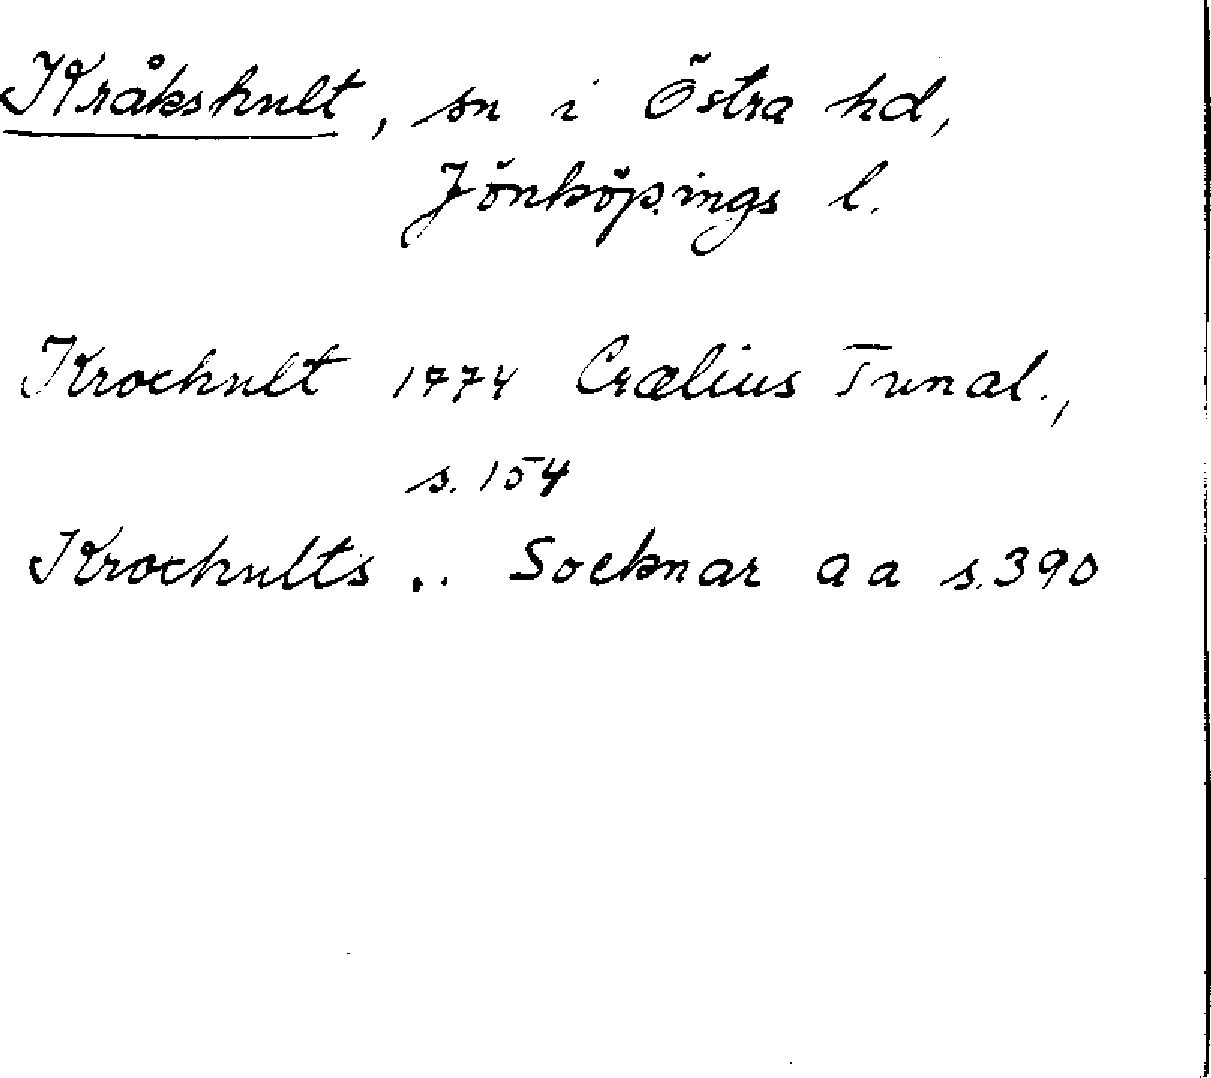 Kråkshult, sn i Östra hd,
Jönköpings l.
Krochult 1774 Crælius Tunal.,
s. 154
Krochults .. Socknar aa s. 390